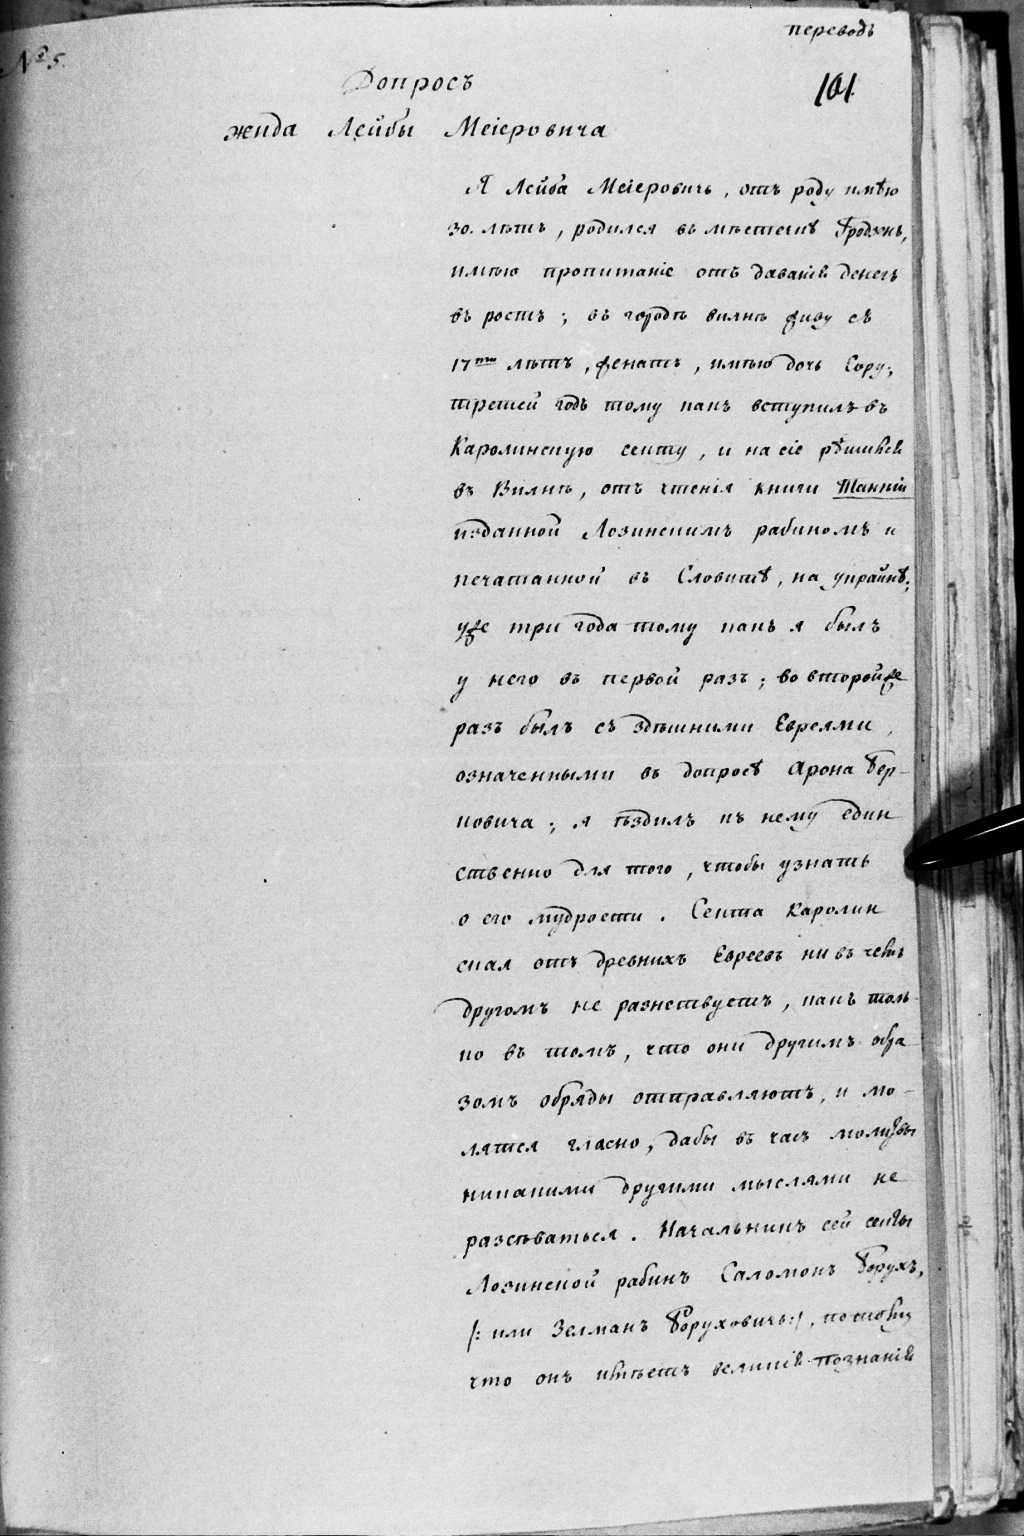 переводъ
№ 5.
101.
Допросъ
жида Лейбы Меiеровича
Я Лейба Меiеровичь, отъ роду имѣю
30. лѣтъ, родился въ мѣстечкѣ
имѣю пропитанiе отъ даванiя денегъ
въ ростъ; въ городѣ вилнѣ живу съ
17ти лѣтъ, женатъ, имѣю дочь Сору;
третей годъ тому какъ вступилъ въ
Каролинскую секту, и на сiе рѣшился
въ Вилнѣ, отъ чтенiя книги Таннiи
изданной Лозинскимъ рабиномъ и
печатанной въ Словитѣ, на украйнѣ;
уже три года тому какъ я былъ
у него въ первой разъ; во второй же
разъ былъ съ здѣшними Евреями,
означенными въ допросѣ Арона Бер-
ковича; я ѣздилъ къ нему един
ственно для того, чтобы узнать
о его мудрости. Секта Каролин
ская отъ древнихъ Евреевъ ни въ чемъ
другомъ не разнствуетъ, какъ толь-
ко въ томъ, что они другимъ обра
зомъ обряды отправляютъ, и мо-
лятся гласно, дабы въ часъ молитвы
никакими другими мыслями не
разсѣваться. Начальникъ сей секты
Лозинской рабинъ Саломонъ Борухъ,
/: или Зелманъ Боруховичь :/, поелику
что онъ имѣетъ великiя познанiя